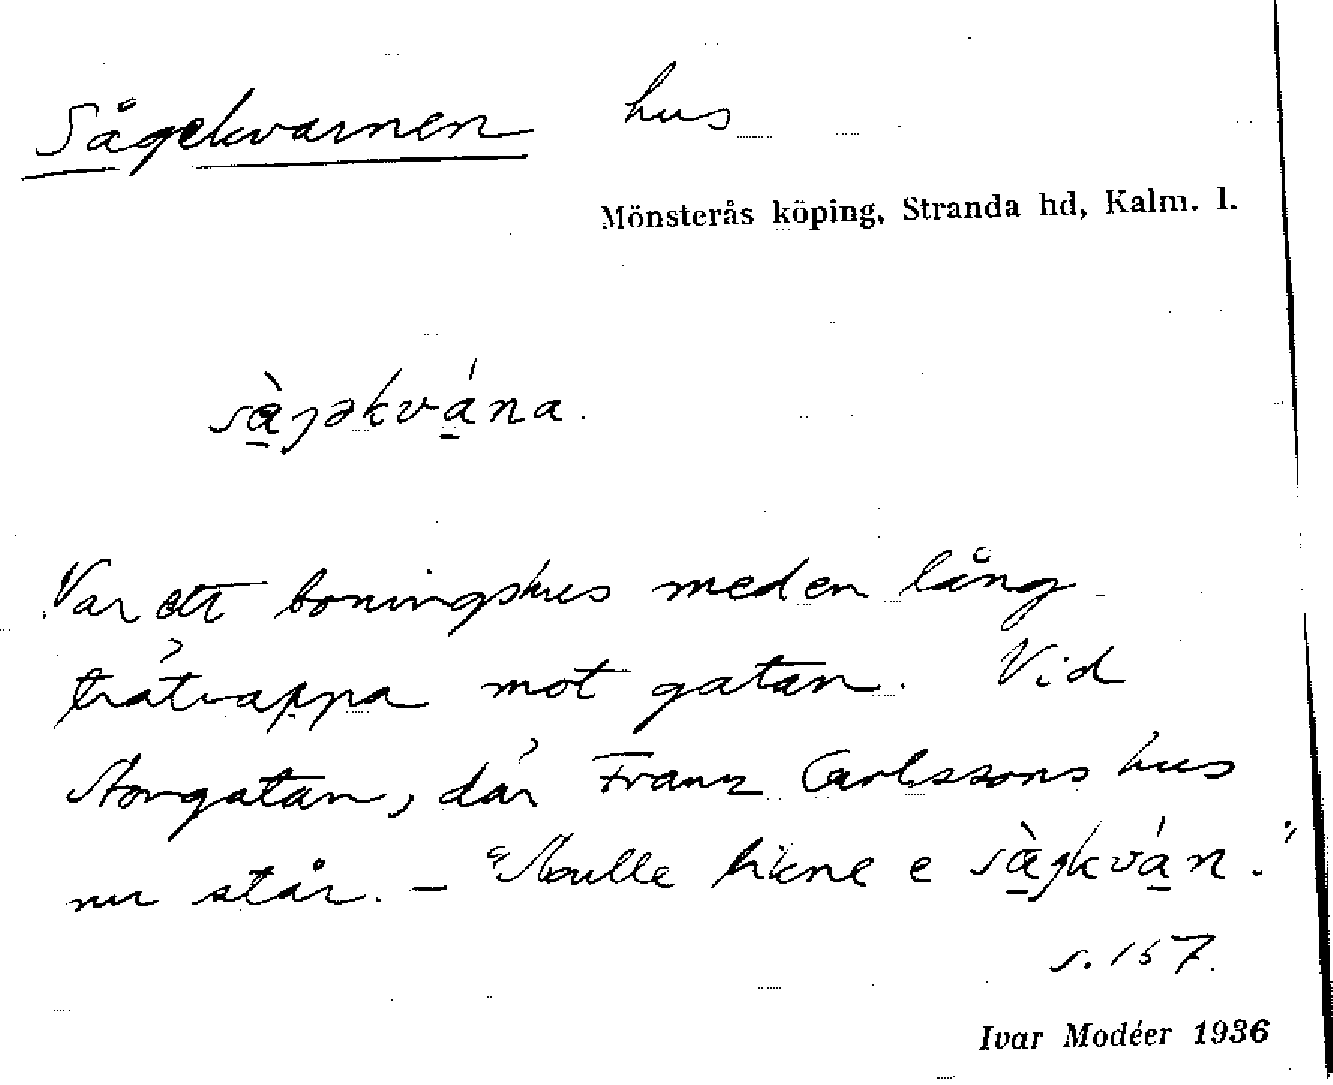 Sågekvarnen hus
Mönsterås köping, Stranda hd, Kalm. l.
sàgəkvána.
Var ett boningshus med en lång
trätrappa mot gatan. Vid
Storgatan, där Franz Carlssons hus
nu står. – "Skulle likne e sàgkván."
s. 157.
Ivar Modéer 1936